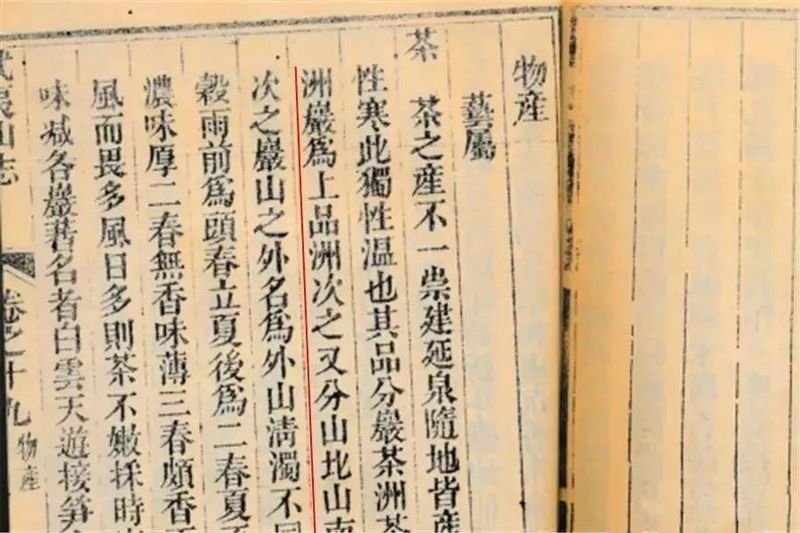 物産
藝屬
茶 茶之産不一崇建延泉隨地皆産
性寒此獨性温也其品分巖茶洲茶
洲巖爲上品洲次之又分山北山南
次之巖山之外名爲外山清濁不同
穀雨前爲頭春立夏後爲二春夏
濃味厚二春無香味薄三春頗香
風而畏多風日多則茶不嫩採時
味减各巖著名者白雲天遊接笋
武夷山志 卷之十九 物産